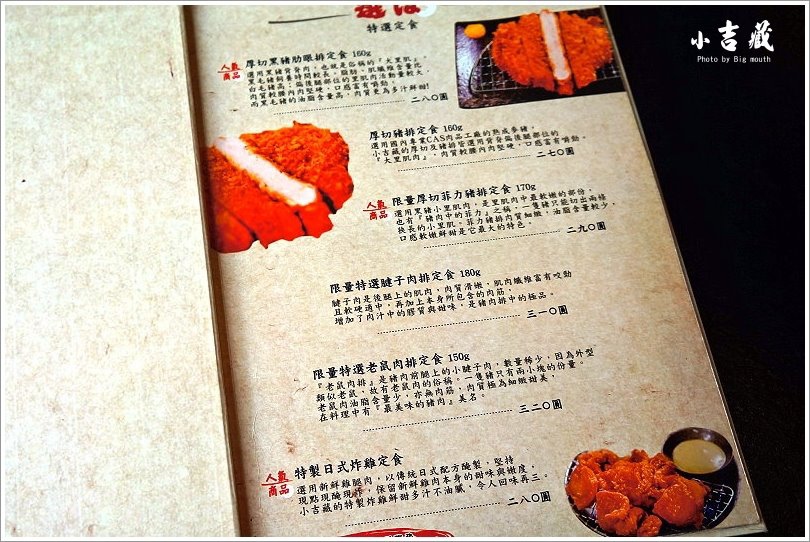 小吉藏
Photo by Big mouth
特選定食
人氣
商品
厚切黑豬肋眼排定食 160g
選用黑豬背脊肉，也就是俗稱的『大里肌』
黑毛豬飼養時間較長，脂肪、肌纖維含量比
白毛豬高；偏後腿部位的里肌肉活動量較大，
肉質較腰內肉堅硬，口感富有嚼勁。
而黑毛豬的油脂含量高，肉質更為多汁鮮甜!
二八〇圓
厚切豬排定食 160g
選用國內專業CAS肉品工廠的熟成麥豬，
小吉藏的厚切及豬排皆選用背脊偏後腿部位的
『大里肌肉』，肉質較腰內肉堅硬，口感富有嚼勁。
二七〇圓
人氣
商品
限量厚切菲力豬排定食 170g
選用黑豬小里肌肉，是里肌肉中最軟嫩的部份，
也有『豬肉中的菲力』之稱，一隻豬只能切出兩條
狹長的小里肌，菲力豬排肉質細緻，油脂含量較少，
口感軟嫩鮮甜是它最大的特色。
二九〇圓
限量特選腱子肉排定食 180g
腱子肉是後腿上的肌肉，肉質滑嫩，肌肉纖維富有咬勁
且軟硬適中，再加上本身所包含的肉筋，
增加了肉汁中的膠質與甜味，是豬肉排中的極品。
三一〇圓
限量特選老鼠肉排定食 150g
『老鼠肉排』是豬肉前腿上的小腱子肉，數量稀少，因為外型
類似老鼠，故有老鼠肉的俗稱。一隻豬只有兩小塊的份量。
老鼠肉油脂含量少，亦無肉筋，肉質極為細緻甜美，
在料理中有『最美味的豬肉』美名。
三二〇圓
人氣
商品
特製日式炸雞定食
選用新鮮雞腿肉，以傳統日式配方醃製，堅持
現點現醃現炸，保留新鮮雞肉本身的甜味與嫩度，
小吉藏的特製炸雞鮮甜多汁不油膩，令人回味再三。
二八〇圓